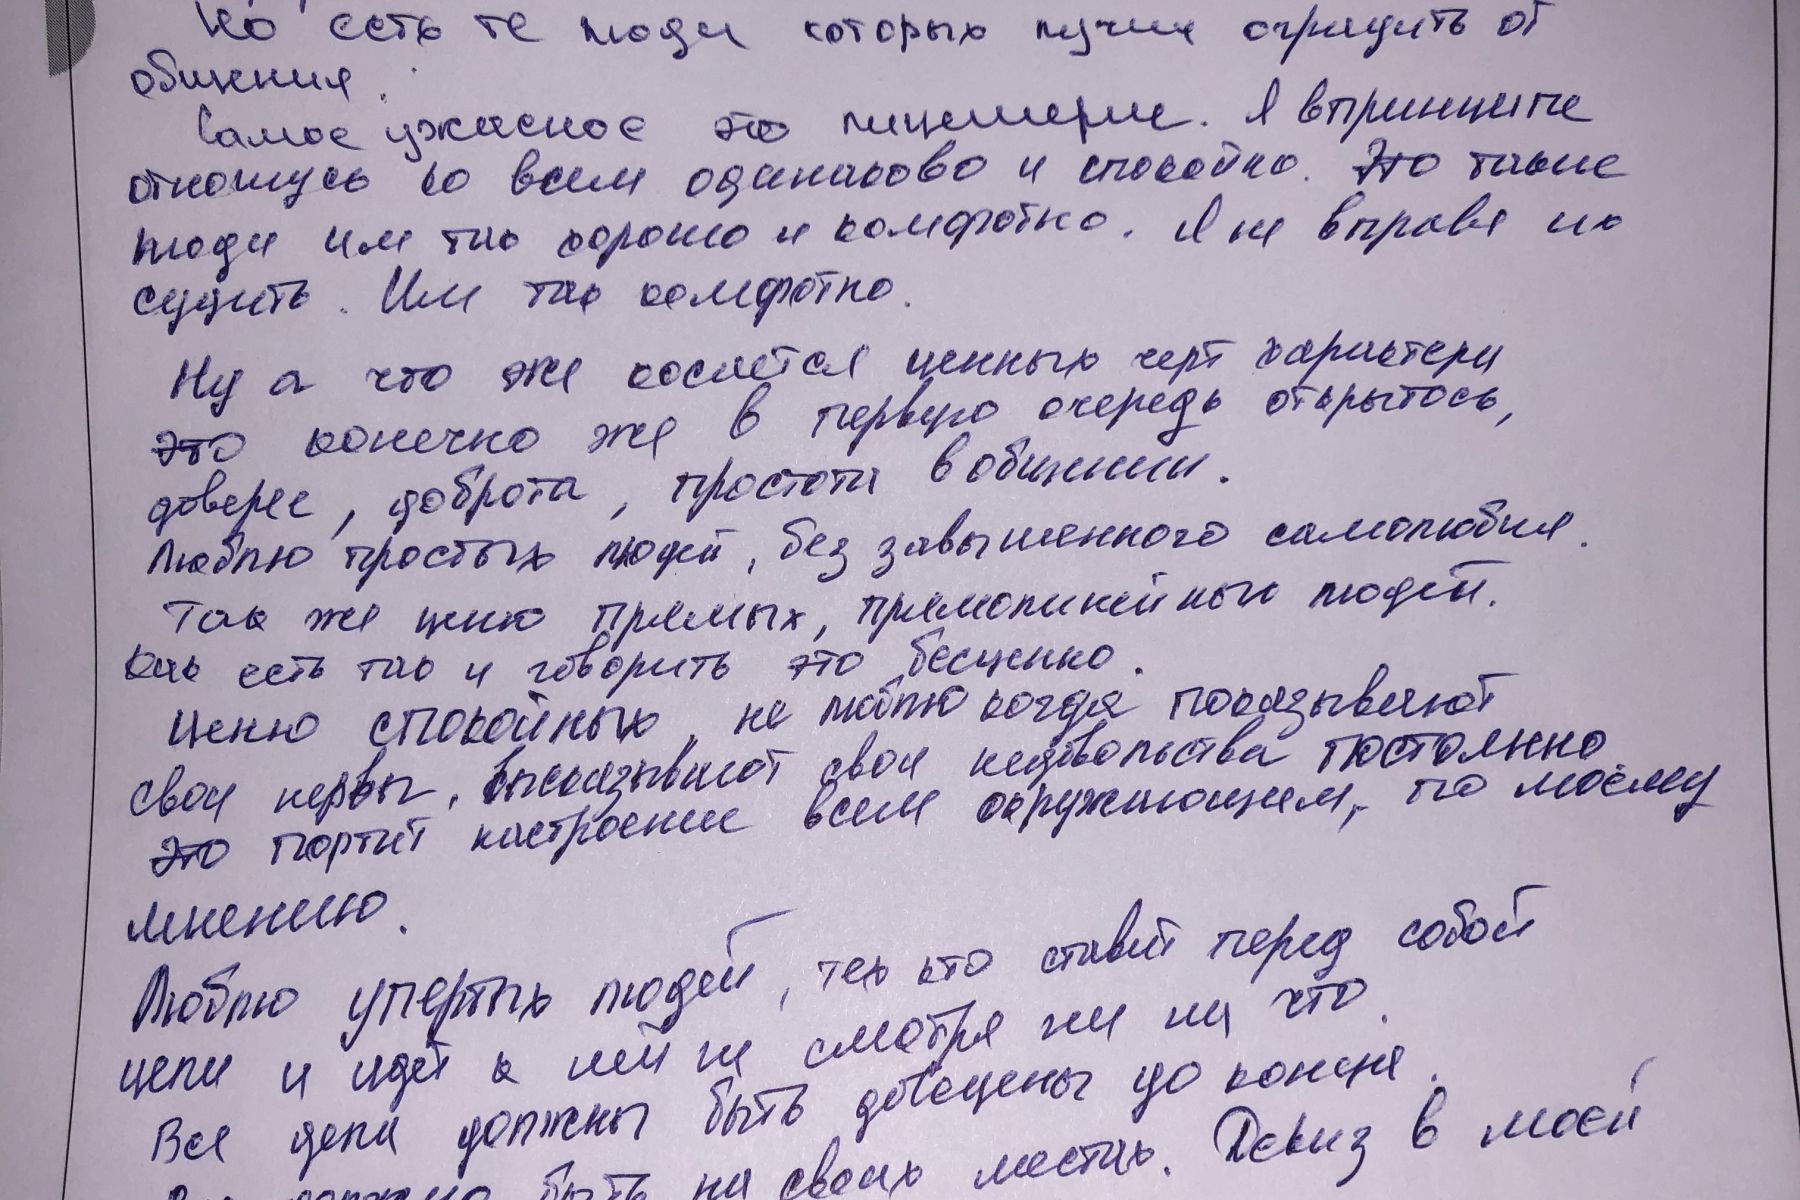 Но есть те люди которых лучше огрицить от
общения.
Самое ужасное это лицемерие. Я впринципе
отношусь ко всем одинаково и спокойно. Это такие
люди им так хорошо и комфотно. Я не вправе их
судить. Им так комфотно.
Ну а что же косается ценных черт характера
это конечно же в первую очередь открытось,
доверее, доброта, простота в общении.
Люблю простых людей, без завышенного самолюбия.
Так же ценю прямых, прямолинейных людей.
Как есть так и говорить это бесценно.
Ценю спокойных, не люблю когда показывают
свои нервы, высказывают свои недовольства постоянно
это портит настроение всем окружающим, по моему
мнению.
Люблю упертых людей, тех кто ставит перед собой
цели и идет к ней не смотря ни на что.
Все дела должны быть доведены до конца.
должно быть на своих местах. Девиз в моей